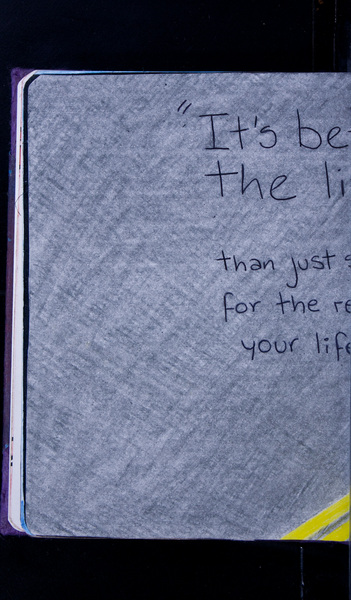 "It's be
the li
than just s
for the re
your life